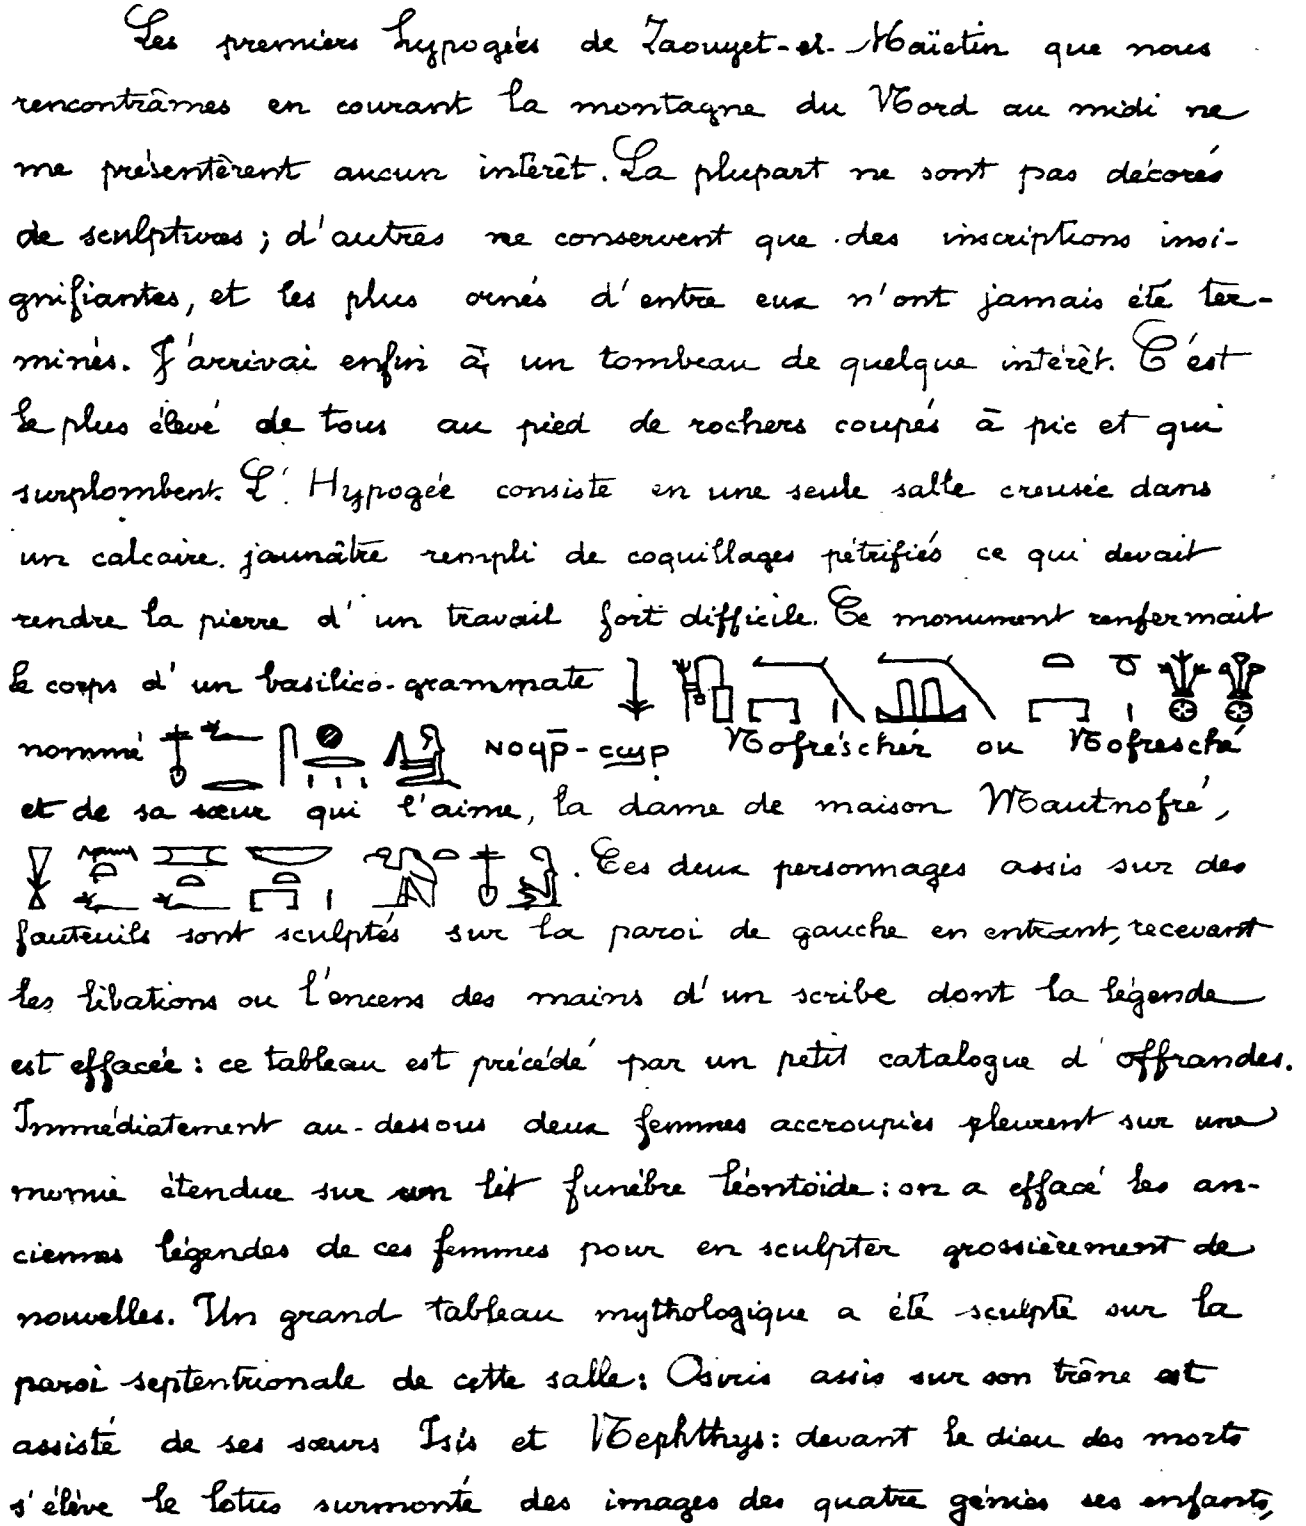 Les premiers hypogées de Zaouyet-el-Maïetin que nous
rencontrâmes en courant la montagne du Nord au midi ne
me présentèrent aucun intérêt. La plupart ne sont pas décorés
de sculptures ; d'autres ne conservent que des inscriptions insi-
gnifiantes, et les plus ornés d'entre eux n'ont jamais été ter-
minés. J'arrivai enfin à un tombeau de quelque intérêt. C'est
le plus élevé de tous au pied de rochers coupés à pic et qui
surplombent. L'Hypogée consiste en une seule salle creusée dans
un calcaire jaunâtre rempli de coquillages pétrifiés ce qui devait
rendre la pierre d'un travail fort difficile. Ce monument renfermait
le corps d'un basilico-grammate
nommé ⲛⲟϥⲣ̅-ⲥϣⲣ Nofréschér ou Nofresché
et de sa sœur qui l'aime, la dame de maison Mautnofré,
. Ces deux personnages assis sur des
fauteuils sont sculptés sur la paroi de gauche en entrant, recevant
les libations ou l'encens des mains d'un scribe dont la légende
est effacée : ce tableau est précédé par un petit catalogue d'offrandes.
Immédiatement au-dessous deux femmes accroupies pleurent sur une
momie étendue sur un lit funèbre léontoïde : on a effacé les an-
ciennes légendes de ces femmes pour en sculpter grossièrement de
nouvelles. Un grand tableau mythologique a été sculpté sur la
paroi septentrionale de cette salle : Osiris assis sur son trône est
assisté de ses sœurs Isis et Nephthys : devant le dieu des morts
s'élève le lotus surmonté des images des quatre génies ses enfants,